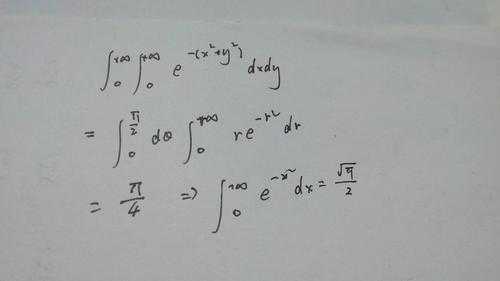 ∫₀^{+∞} ∫₀^{+∞} e^{-(x²+y²)} dxdy
= ∫₀^{π/2} dθ ∫₀^{+∞} re^{-r²} dr
= π/4 ⇒ ∫₀^{+∞} e^{-x²} dx = √π/2